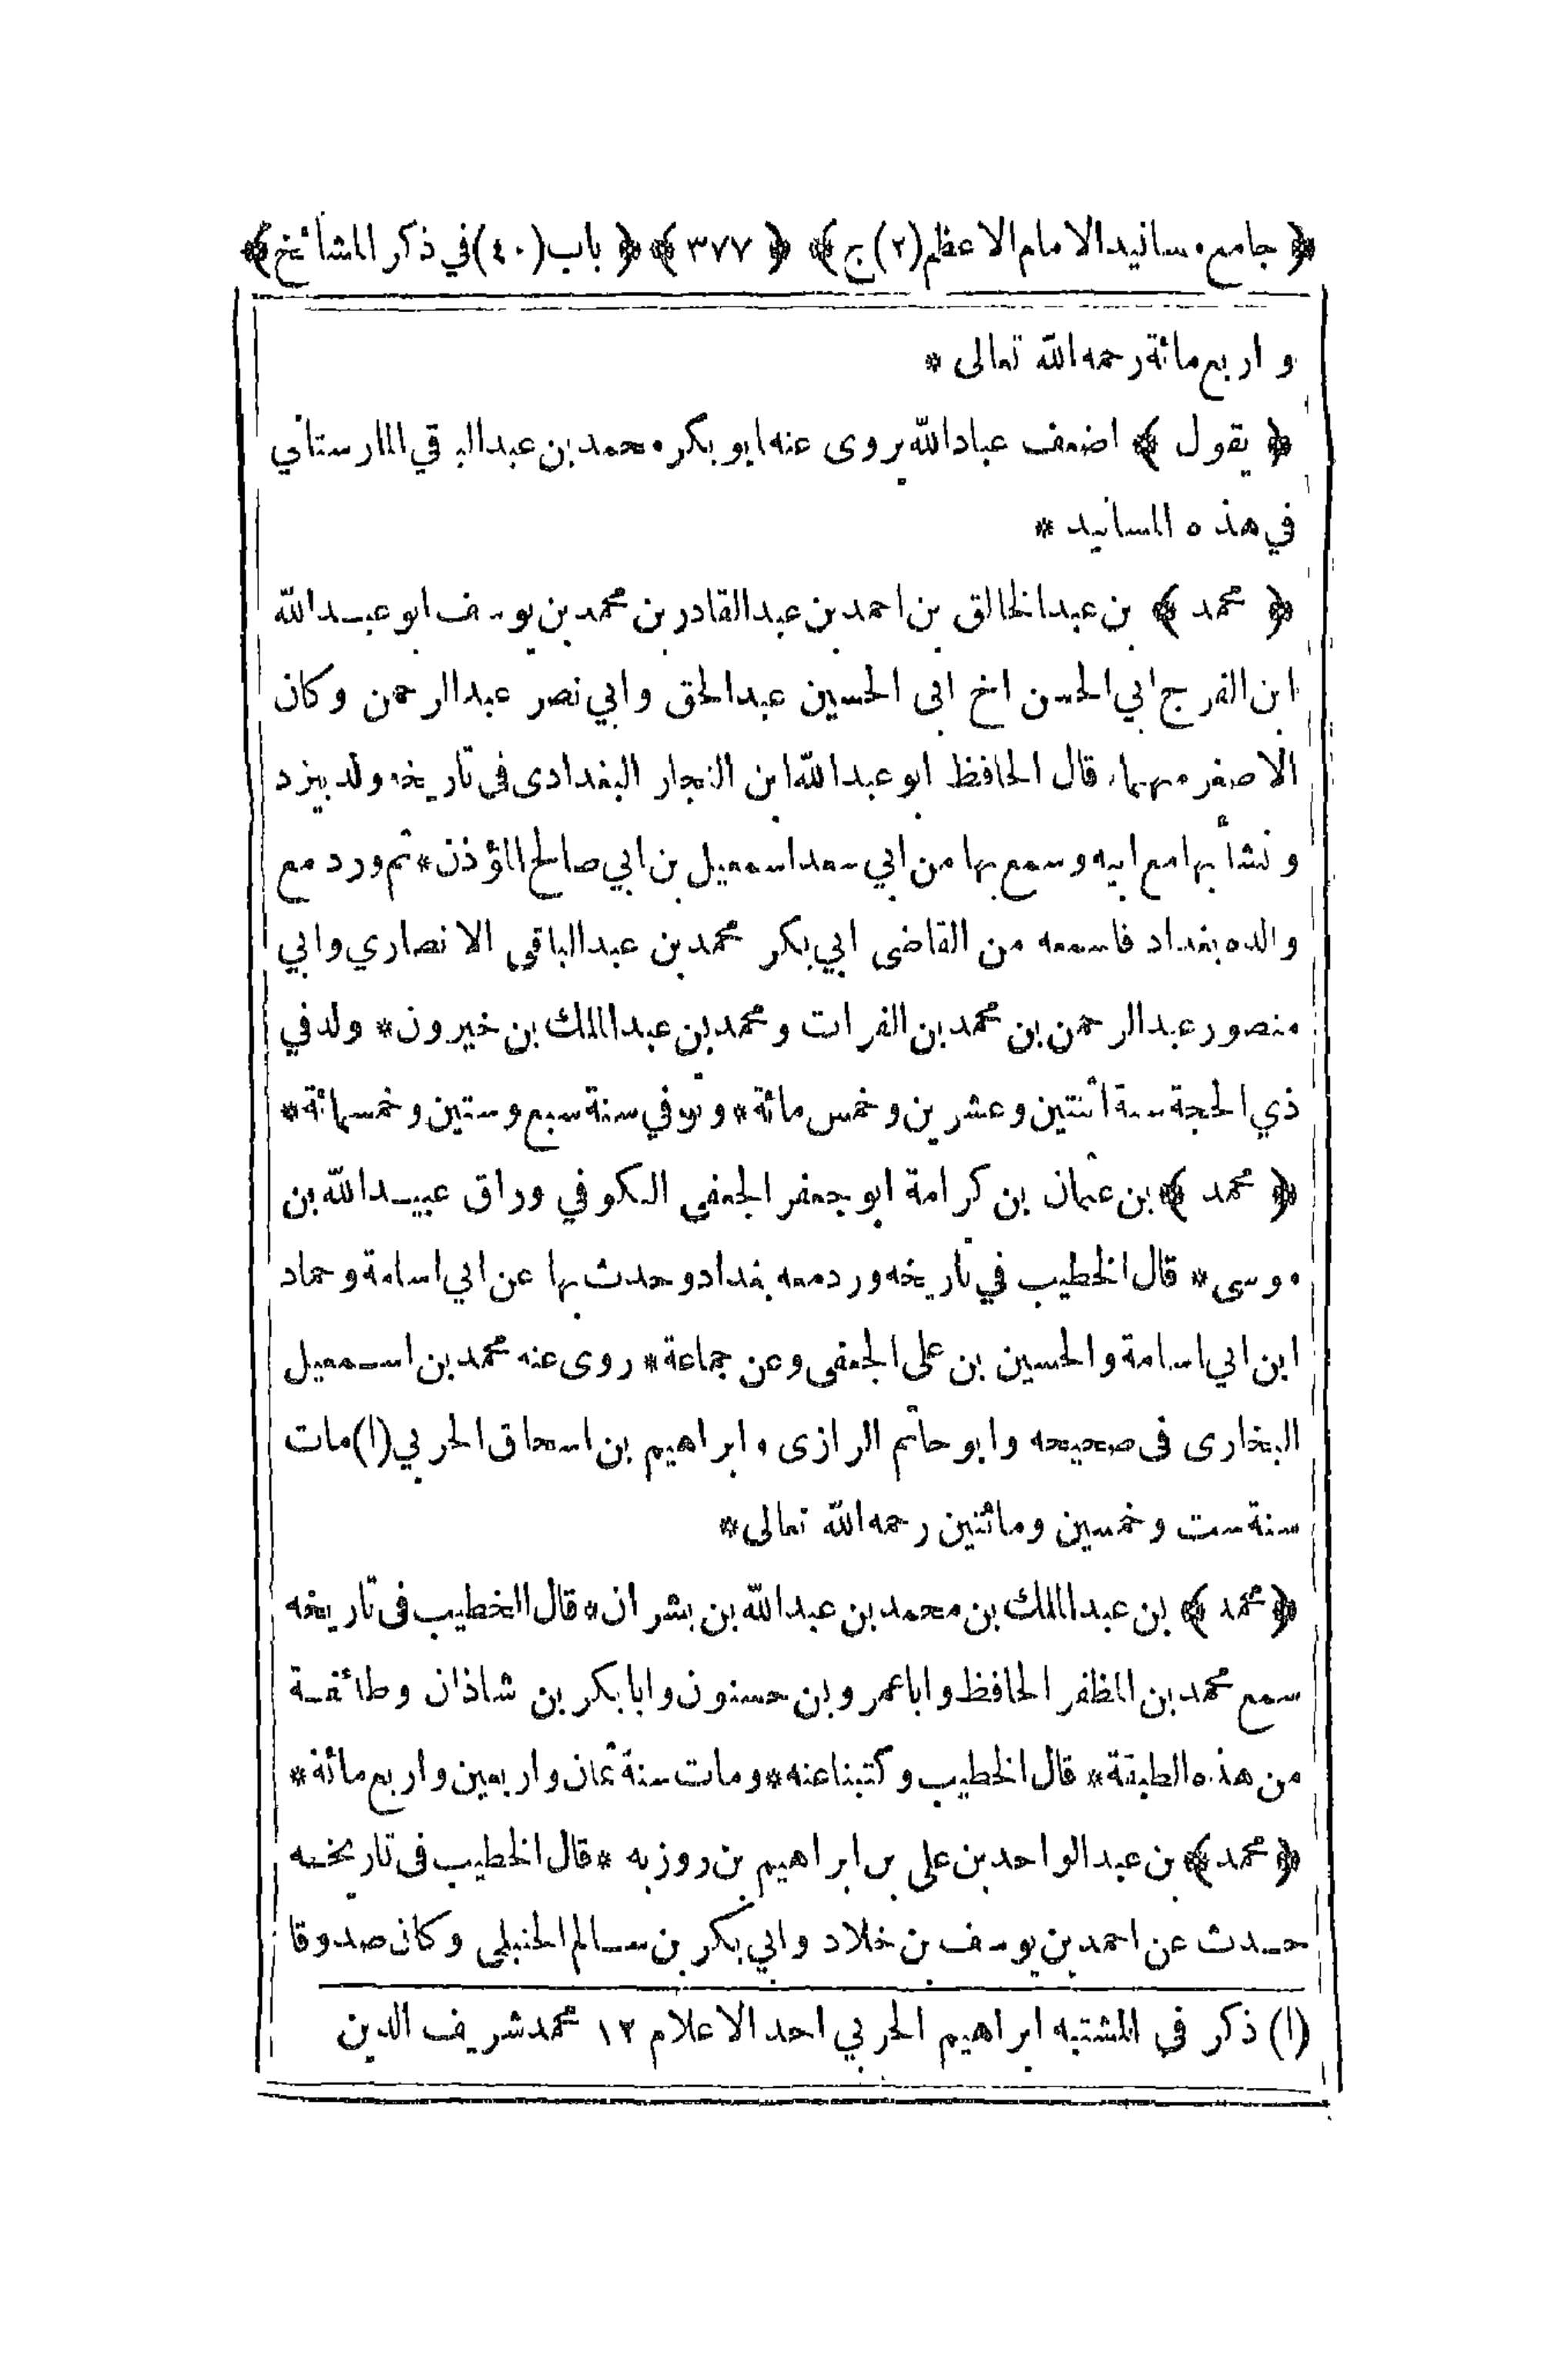 ﴿ جامع مسانيد الامام الاعظم (٢) ج ﴾ ﴿ ٣٧٧ ﴾ ﴿ باب (٤٠) في ذكر المشائخ ﴾
و اربع مائة رحمه الله تعالى *
﴿ يقول ﴾ اضعف عباد الله يروى عنه ابو بكر محمد بن عبد البا قي المارستاني
في هذه المسانيد *
﴿ محمد ﴾ بن عبد الخالق بن احمد بن عبد القادر بن محمد بن يوسف ابو عبد الله
ابن الفرج ابي الحسن اخ ابى الحسين عبد الحق وابي نصر عبد الرحمن وكان
الاصغر منهما، قال الحافظ ابو عبد الله ابن النجار البغدادى فى تاريخه ولد بيزد
و نشأ بها مع ابيه وسمع بها من ابي سعد اسمعيل بن ابي صالح المؤذن * ثم ورد مع
والده بغداد فاسمعه من القاضى ابي بكر محمد بن عبد الباقى الانصاري وابي
منصور عبد الرحمن بن محمد بن الفرات ومحمد بن عبد الملك بن خيرون * ولد في
ذي الحجة سنة اثنتين وعشرين وخمس مائة * وتوفي سنة سبع وستين وخمسمائة *
﴿ محمد ﴾ بن عثمان بن كرامة ابو جعفر الجعفى الكوفي وراق عبيد الله بن
موسى * قال الخطيب في تاريخه ورد معه بغداد وحدث بها عن ابي اسامة وحماد
ابن ابي اسامة والحسين بن على الجعفى وعن جماعة * روى عنه محمد بن اسمعيل
البخارى فى صحيحه وابو حاتم الرازى وابراهيم بن اسحاق الحربي (١) مات
سنة ست وخمسين ومائتين رحمه الله تعالى *
﴿ محمد ﴾ بن عبد الملك بن محمد بن عبد الله بن بشران * قال الخطيب فى تاريخه
سمع محمد بن المظفر الحافظ وابا عمر وبن حسنون وابا بكر بن شاذان وطائفة
من هذه الطبقة * قال الخطيب وكتبنا عنه * ومات سنة ثمان واربعين واربع مائة *
﴿ محمد ﴾ بن عبد الواحد بن على بن ابراهيم بن روزبه * قال الخطيب فى تاريخه
حدث عن احمد بن يوسف بن خلاد وابي بكر بن سالم الحنبلى وكان صدوقا
(١) ذكر فى المشتبه ابراهيم الحربي احد الاعلام ١٢ محمد شريف الدين